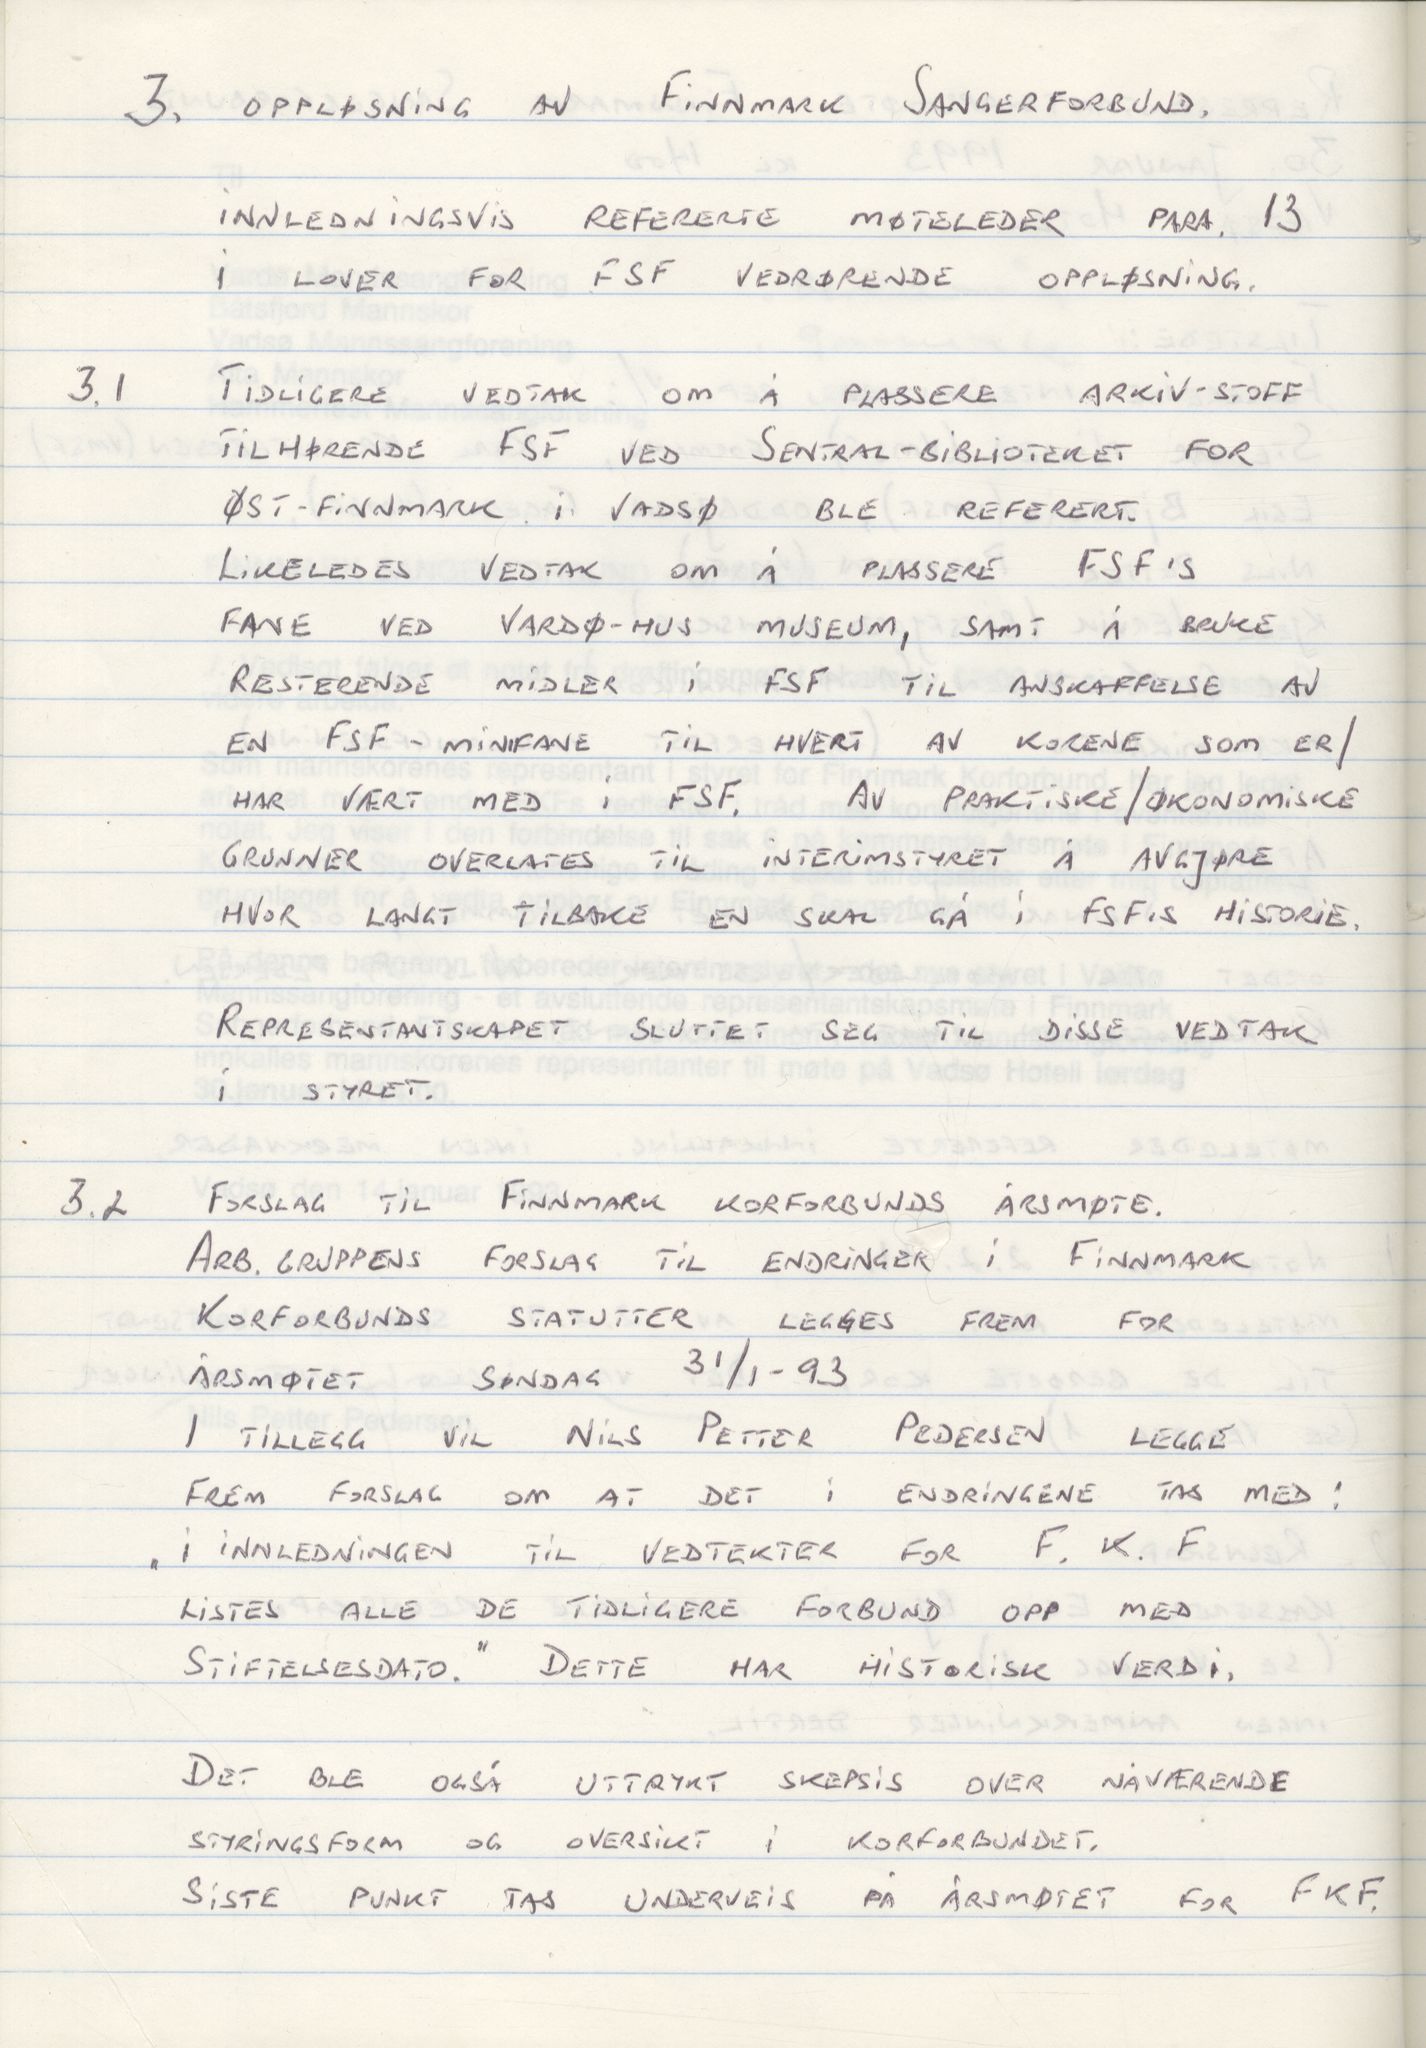 3. OPPLØSNING AV FINNMARK SANGERFORBUND.
INNLEDNINGSVIS REFERERTE MØTELEDER PARA. 13
I LOVER FOR FSF VEDRØRENDE OPPLØSNING.
3.1 TIDLIGERE VEDTAK OM Å PLASSERE ARKIV-STOFF
TILHØRENDE FSF VED SENTRAL-BIBLIOTEKET FOR
ØST-FINNMARK I VADSØ BLE REFERERT.
LIKELEDES VEDTAK OM Å PLASSERE FSF'S
FANE VED VARDØ-HUS MUSEUM, SAMT Å BRUKE
RESTERENDE MIDLER I FSF TIL ANSKAFFELSE AV
EN FSF-MINIFANE TIL HVERT AV KORENE SOM ER/
HAR VÆRT MED I FSF. AV PRAKTISKE/ØKONOMISKE
GRUNNER OVERLATES TIL INTERIMSTYRET Å AVGJØRE
HVOR LANGT TILBAKE EN SKAL GÅ I FSF'S HISTORIE.
REPRESENTANTSKAPET SLUTTET SEG TIL DISSE VEDTAK
I STYRET.
3.2 FORSLAG TIL FINNMARK KORFORBUNDS ÅRSMØTE.
ARB. GRUPPENS FORSLAG TIL ENDRINGER I FINNMARK
KORFORBUNDS STATUTTER LEGGES FREM FOR
ÅRSMØTET SØNDAG 31/1-93
I TILLEGG VIL NILS PETTER PEDERSEN LEGGE
FREM FORSLAG OM AT DET I ENDRINGENE TAS MED:
"I INNLEDNINGEN TIL VEDTEKTER FOR F. K. F
LISTES ALLE DE TIDLIGERE FORBUND OPP MED
STIFTELSESDATO." DETTE HAR HISTORISK VERDI.
DET BLE OGSÅ UTTRYKT SKEPSIS OVER NÅVÆRENDE
STYRINGSFORM OG OVERSIKT I KORFORBUNDET.
SISTE PUNKT TAS UNDERVEIS PÅ ÅRSMØTET FOR FKF.